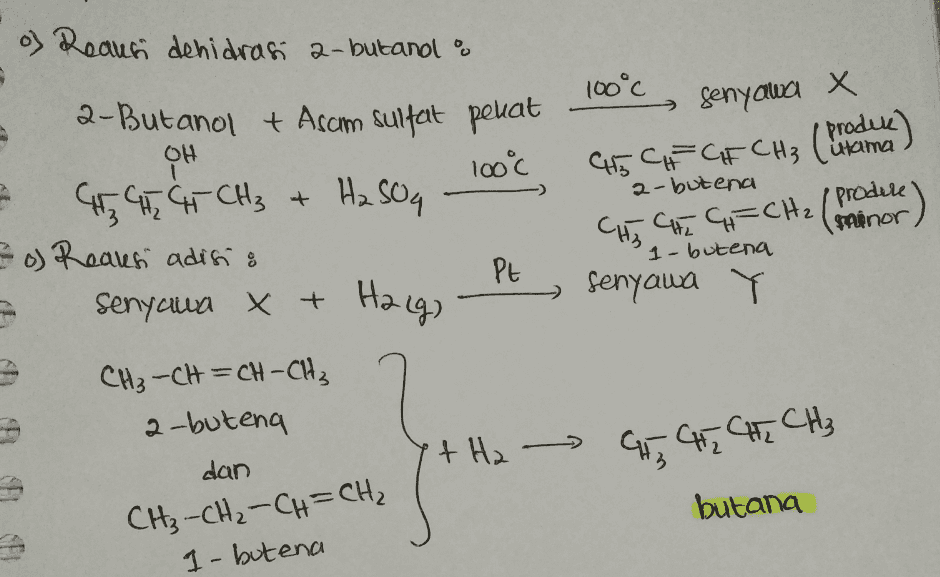 o) Reaksi dehidrasi 2-butanol :
2-Butanol + Asam sulfat pekat 100°C → senyawa X
OH
CH3-CH2-CH-CH3 + H2SO4 100°C → CH3-CH=CH-CH3 (produk utama)
2-butena
CH3-CH2-CH=CH2 (produk minor)
1-butena
o) Reaksi adisi :
senyawa X + H2(g) Pt → senyawa Y
CH3-CH=CH-CH3
2-butena
dan
CH3-CH2-CH=CH2
1-butena
+ H2 → CH3-CH2-CH2-CH3
butana